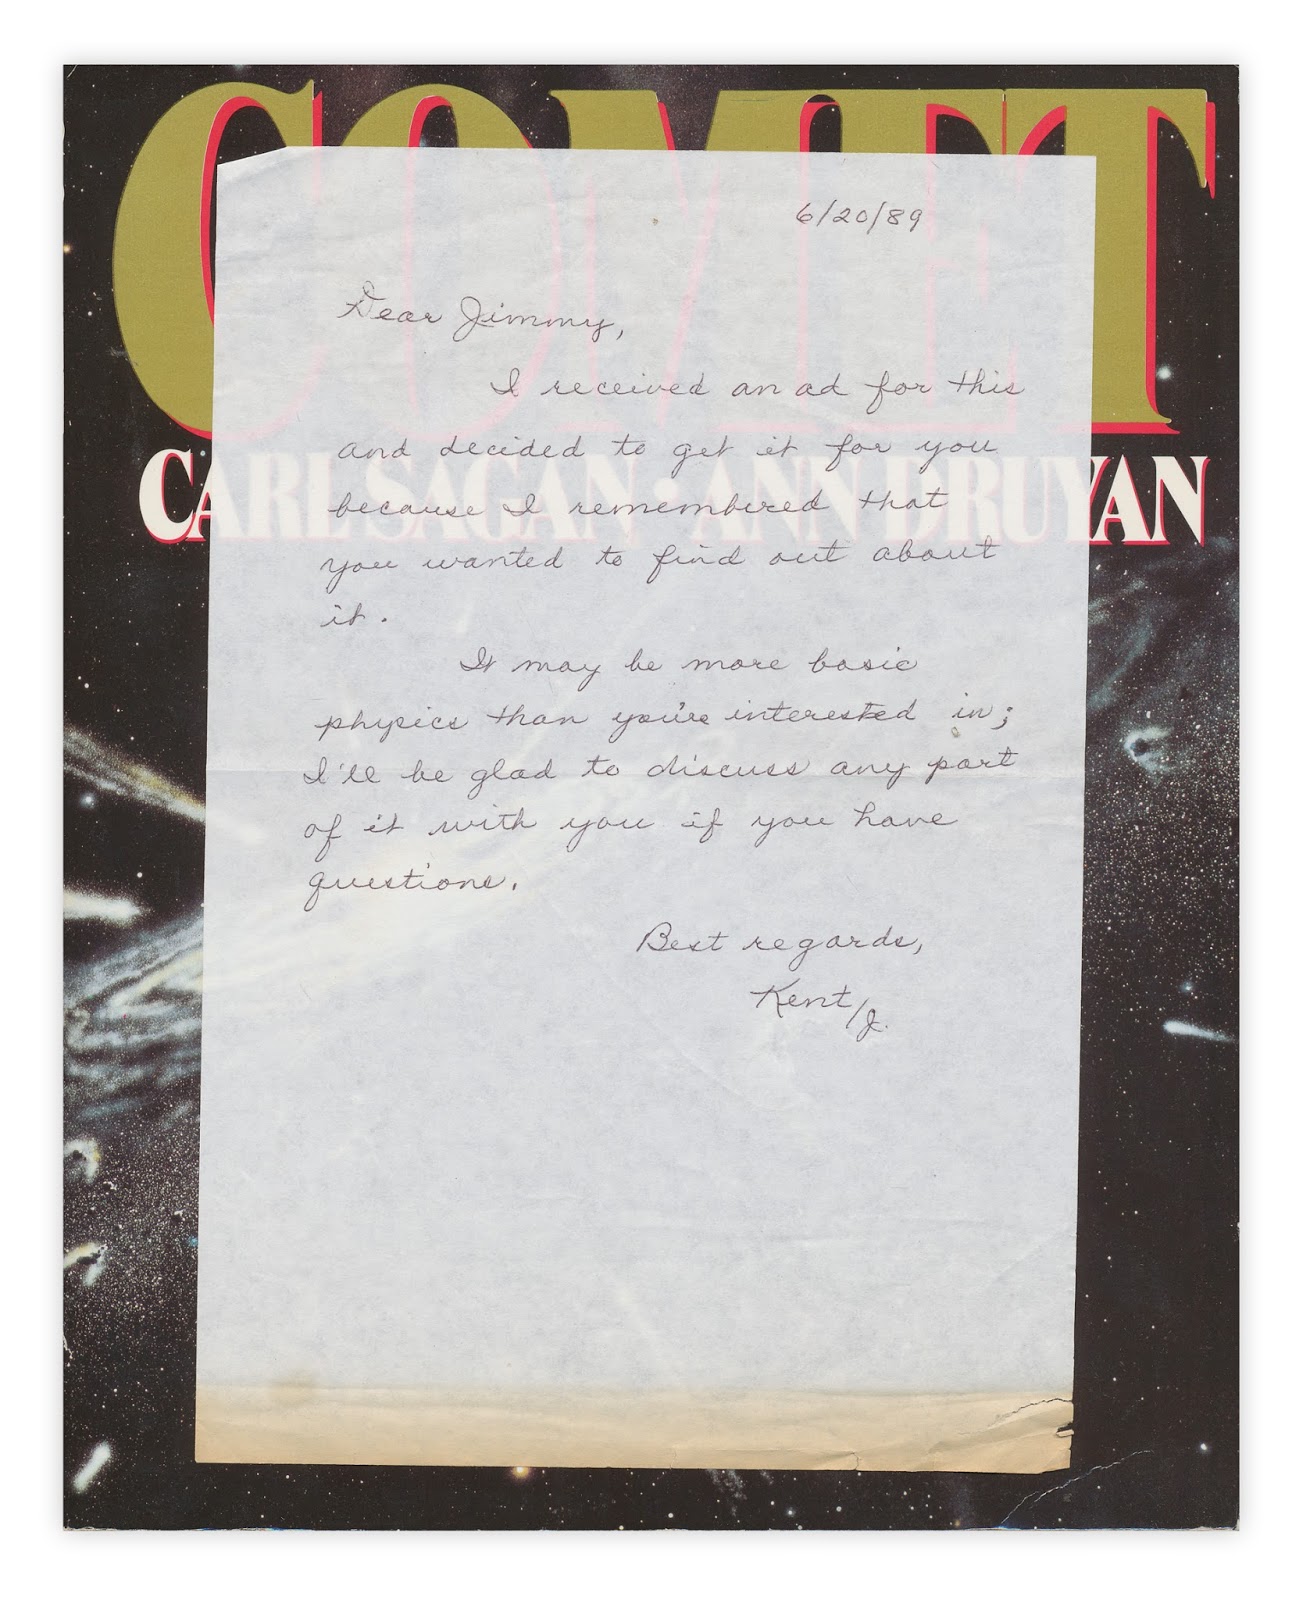 COMET
6/20/89
CARL SAGAN • ANN DRUYAN
Dear Jimmy,
I received an ad for this
and decided to get it for you
because I remembered that
you wanted to find out about
it.
It may be more basic
physics than you're interested in;
I'll be glad to discuss any part
of it with you if you have
questions.
Best regards,
Kent/J.